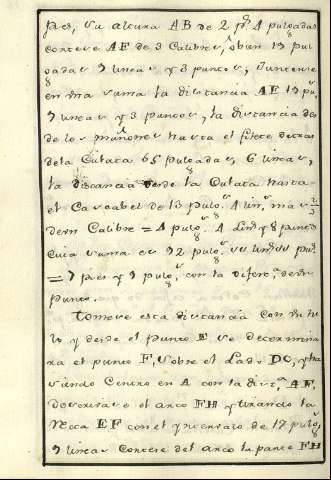 pies, su altura AB de 2 ps 1 pulgadas
conteze AE de 3 Calibres, ò bien 15 pul
gadas 9 lineas y 3 puntos, Juntense
en vna suma la distancia AE 15 pu.
9 lineas y 3 puntos, la distancia des
de los muñones hasta el filete detras
dela Culata 65 pulgadas, 6 lineas,
la distancia desde la Culata hasta
el Cascabel de 13 pulgs. 1 lin. mas 2/3
de vn Calibre = 4 pulgs. 1 Lins y 8 puntos
Cuia suma es 92 pulgs.
= 7 pies y 9 pulgs. con la difera. de vn
punto.
Tomese esta distancia con vn hi
lo y desde el punto E se determina
ra el punto F, sobre el Lado DC, y ha
ciendo Centro en A con la dista. AF,
descrivase el arco FH y tirando la
recta EF con el yntervalo de 17 pulgs.
9 lineas Cortese del arco la parte FH